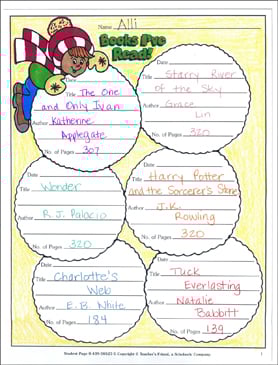 Name Alli
Books I've
Read!
Date
Title The One
and Only Ivan
Author Katherine
Applegate
No. of Pages 307
Date
Title Starry River
of the Sky
Author Grace
Lin
No. of Pages 320
Date
Title
Wonder
Author
R.J. Palacio
No. of Pages
320
Date
Title Harry Potter
and the Sorcerer's Stone
Author J.K.
Rowling
No. of Pages 320
Date
Title Charlotte's
Web
Author E.B. White
No. of Pages 184
Date
Title Tuck
Everlasting
Author Natalie
Babbitt
No. of Pages 139
1